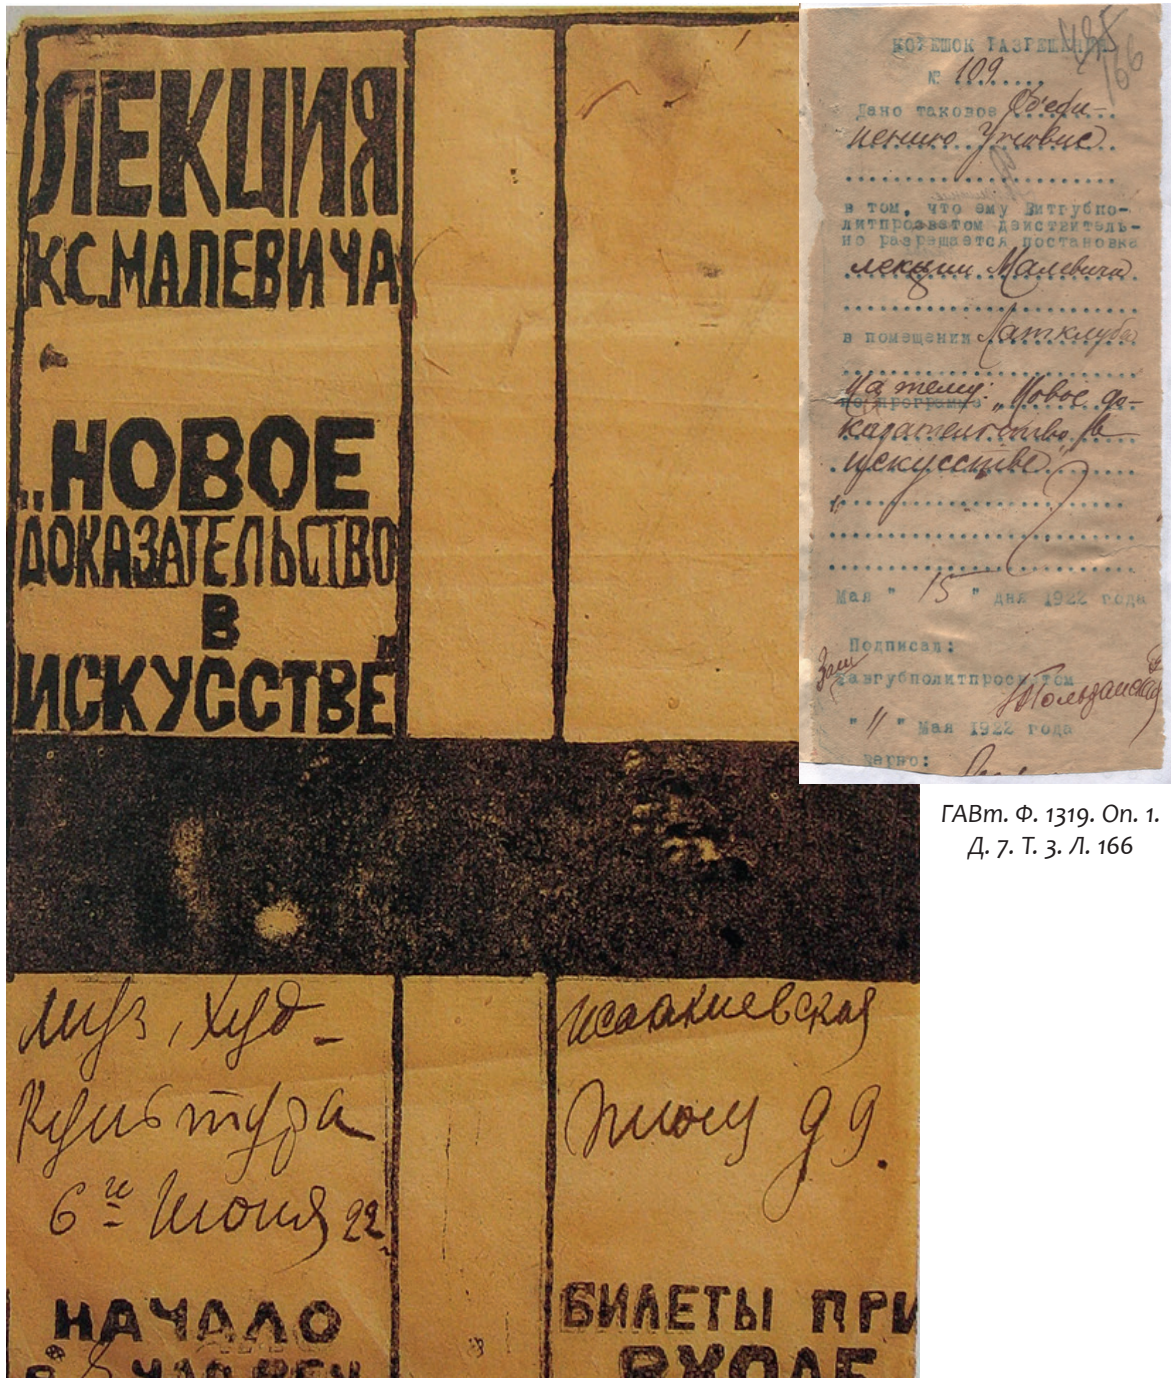 ЛЕКЦИЯ
К.С.МАЛЕВИЧА
„НОВОЕ
ДОКАЗАТЕЛЬСТВО
В
ИСКУССТВЕ"
Муз, Худ-
Культура
6го Июня 22
НАЧАЛО
Исаакиевская
площ 9 9.
БИЛЕТЫ ПРИ
ВХОДЕ
КОРЕШОК РАЗРЕШЕНИЯ
№ 109
Дано таковое Объеди-
нению Уновис
в том, что ему Витгубпо-
литпросветом действитель-
но разрешается постановка
лекции Малевича
в помещении Латклуба
На тему: „Новое до-
казательство в
искусстве"
Мая " 15 " дня 1922 года
Подписал:
Завгубполитпросветом
" 11 " Мая 1922 года
Верно:
ГАВт. Ф. 1319. Оп. 1.
Д. 7. Т. 3. Л. 166